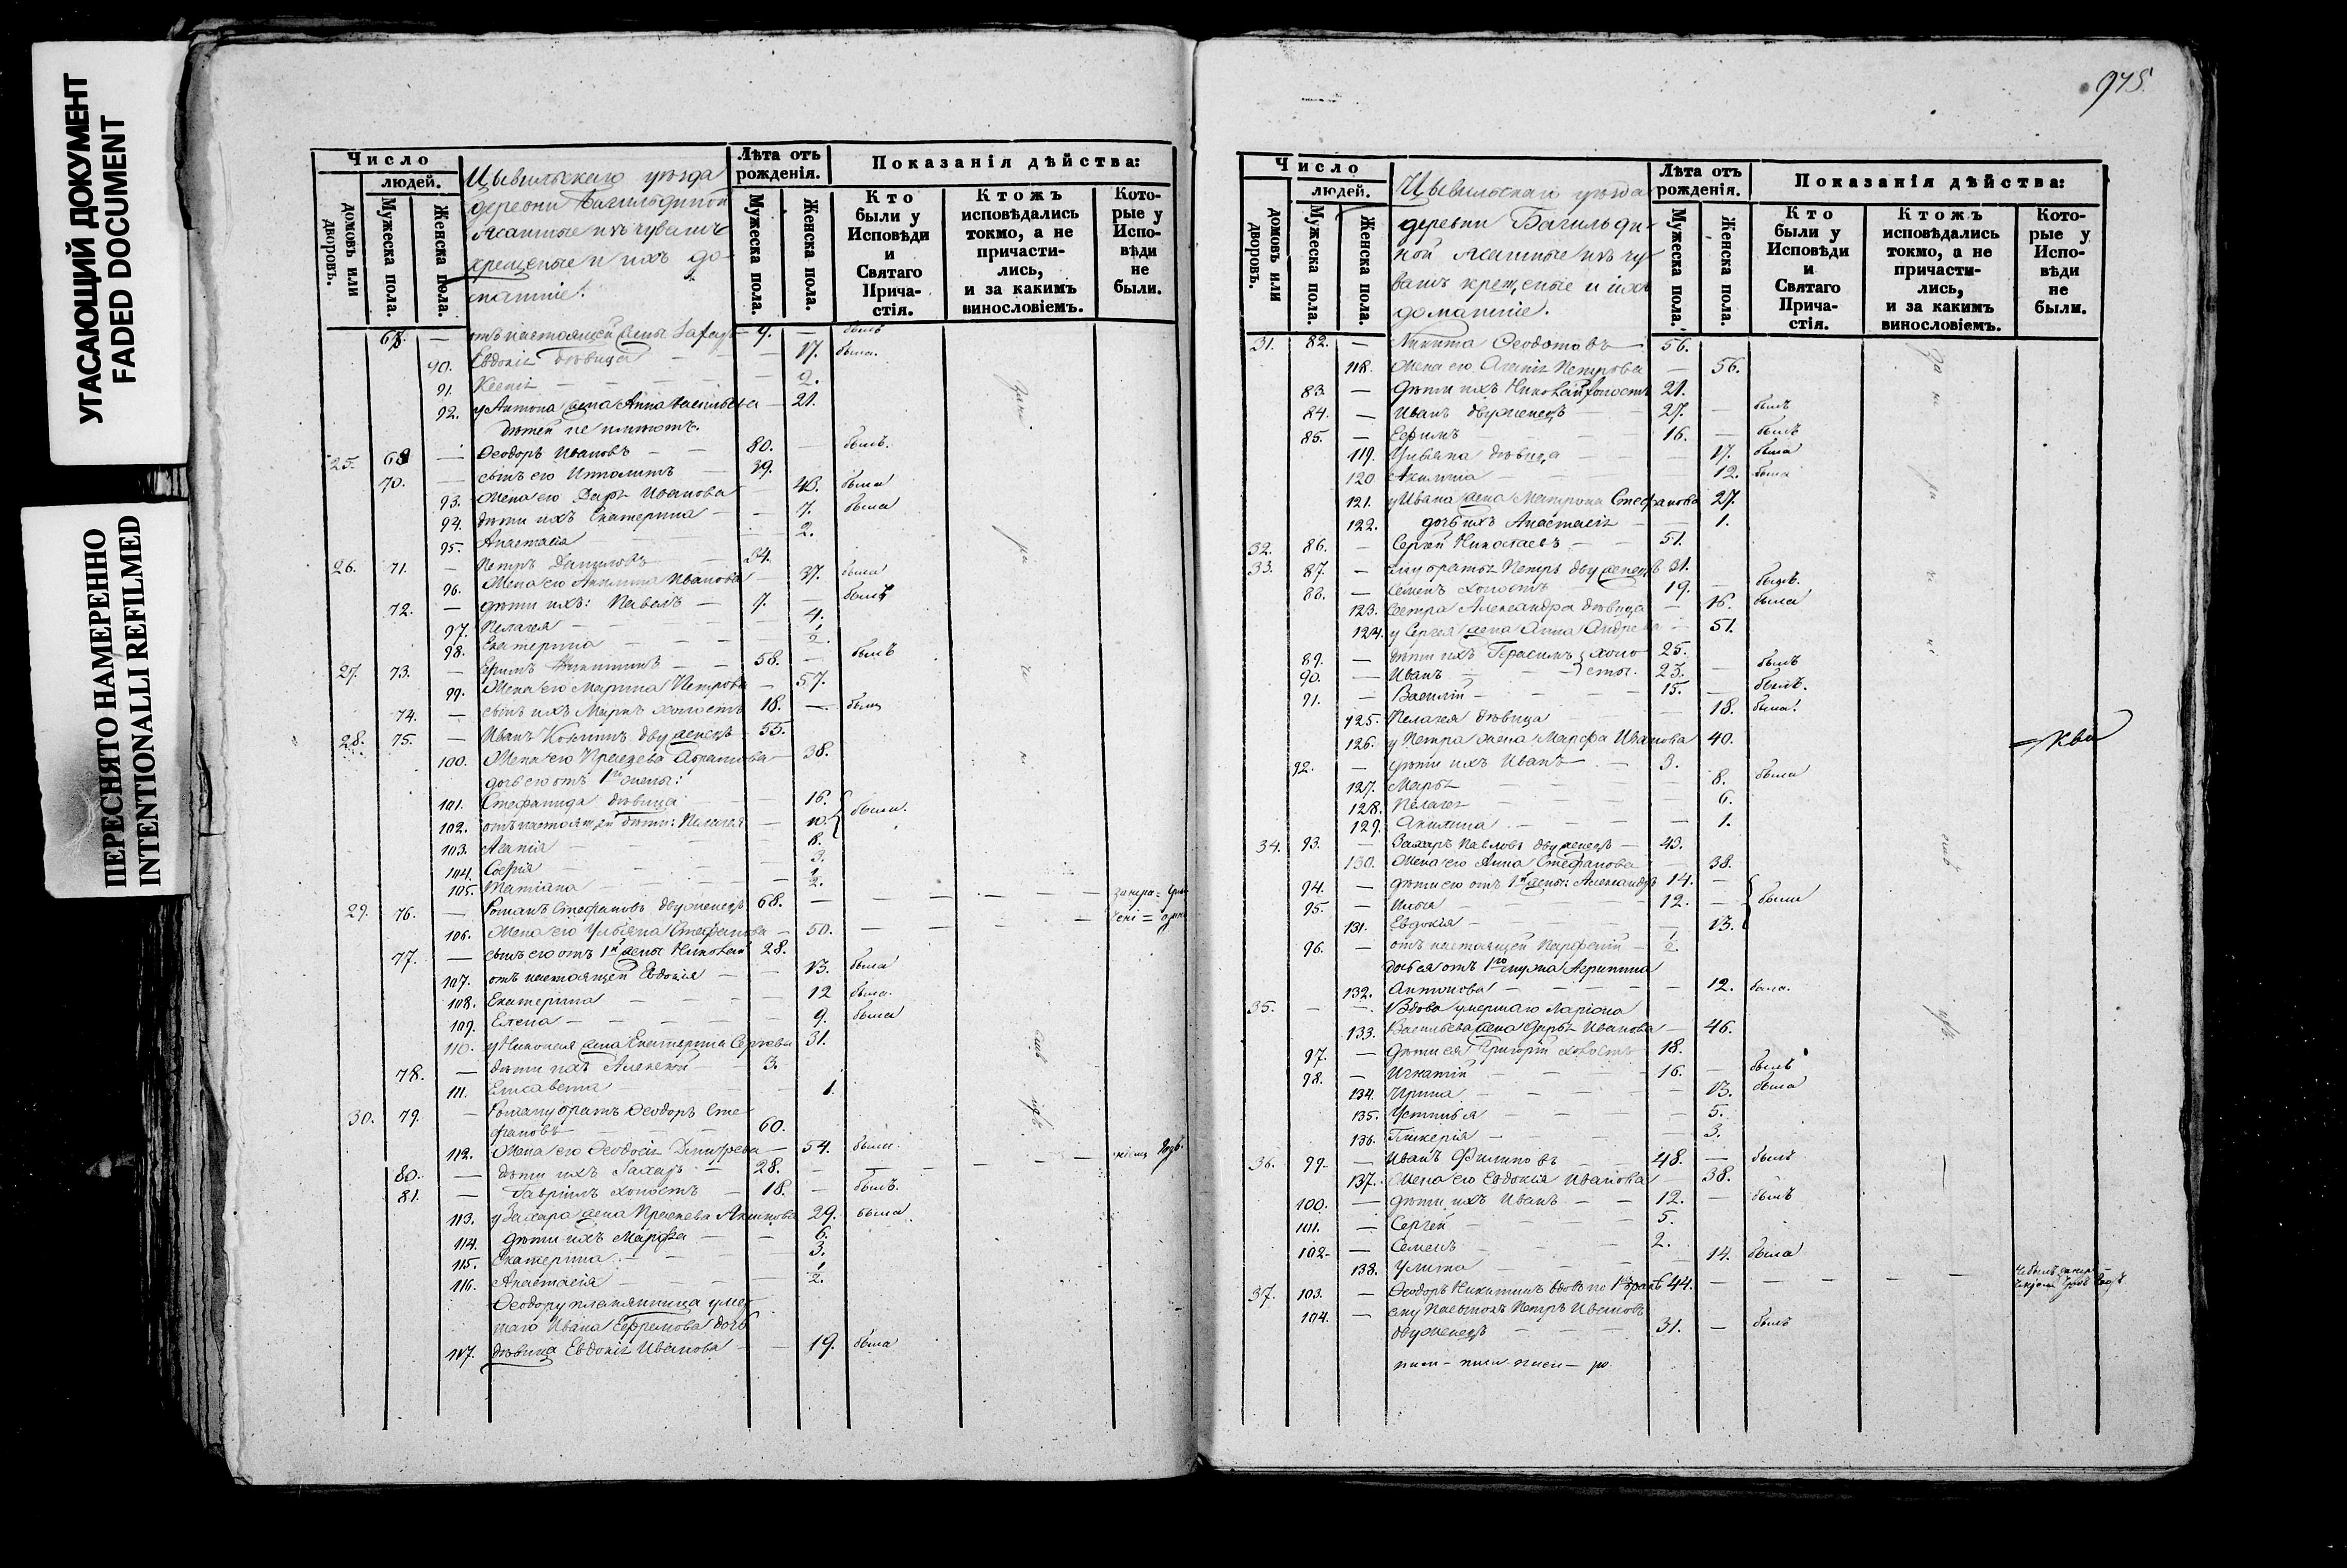 УГАСАЮЩИЙ ДОКУМЕНТ
FADED DOCUMENT
ПЕРЕСНЯТО НАМЕРЕННО
INTENTIONALLI REFILMED
Число
людей.
домовъ или дворовъ.
Мужеска пола.
Женска пола.
Цывильскаго уѣзда
деревни Багильдиной
Ясашные изъ чувашъ
крещеные и ихъ до-
машніе.
Лѣта отъ рожденія.
Мужеска пола.
Женска пола.
Показанія дѣйства:
Кто были у Исповѣди и Святаго Прича- стія.
Ктожъ исповѣдались токмо, а не причасти- лись, и за какимъ винословіемъ.
Кото- рые у Испо- вѣди не были.
68. — отъ настоящей жены Захаръ 9. — былъ
90. Евдокія дѣвица — 17. была.
91. Ксенія — 2.
92. у Антона жена Анна Васильева — 21.
дѣтей не имѣютъ.
25. 69 — Ѳеодоръ Ивановъ — 80. — былъ.
70. — сынъ его Ипполитъ 39.
93. Жена его Дарья Иванова 43. была
94. дѣти ихъ Екатерина — 7. была
95. Анастасія 2.
26. 71. — Петръ Даниловъ 34.
96. Жена его Акилина Иванова — 37. была
72. — дѣти ихъ: Павелъ — 7. — былъ
97. Пелагея 4.
98. Екатерина — 1/2.
27. 73. — Ефимъ Никитинъ — 58. — былъ
99. Жена его Марина Петрова — 57.
74. — сынъ ихъ Маркъ холостъ 18. — былъ
28. 75. — Иванъ двуженецъ 55.
100. Жена его Абрамова 38.
дочь его отъ 1й жены:
101. Стефанида дѣвица — 16.
102. отъ настоящей дѣти: Пелагея — 10. были.
103. Агапія — 8.
104. Софія — 3.
105. Татіана — 1/2.
29. 76. — Романъ Стефановъ двуженецъ 68. —
106. Жена его Ульяна Стефанова — 50. —
77. — сынъ его отъ 1й жены Николай 28.
107. отъ настоящей Евдокія — 13. была
108. Екатерина — 12 была.
109. Елена — 9. была
110. у Николая жена Екатерина Сергѣева 31.
78. — дѣти ихъ Алексей — 3.
111. Елисавета 1.
30. 79. — Роману братъ Ѳеодоръ Сте-
фановъ — 60.
112. Жена его Ѳеодосія Димитрева — 54. была.
80. — дѣти ихъ Захаръ — 28. —
81. — Гавріилъ холостъ — 18. — былъ.
113. у Захара жена 29. была
114. дѣти ихъ Марѳа — 6.
115. Екатерина — 3.
116. Анастасія — 1/2.
Ѳеодору племянница умер-
шаго Ивана Ефремова дочь
117. дѣвица Евдокія Иванова — 19. была
975.
Число
людей.
домовъ или дворовъ.
Мужеска пола.
Женска пола.
Цывильскаго уѣзда
деревни Багильди-
ной Ясашные изъ чу-
вашъ крещеные и ихъ
домашніе.
Лѣта отъ рожденія.
Мужеска пола.
Женска пола.
Показанія дѣйства:
Кто были у Исповѣди и Святаго Прича- стія.
Ктожъ исповѣдались токмо, а не причасти- лись, и за какимъ винословіемъ.
Кото- рые у Испо- вѣди не были.
31. 82. — Никита Ѳеодотовъ — 56.
118. Жена его Агапія Петрова — 56.
83. — дѣти ихъ Николай холостъ 21.
84. — Иванъ двуженецъ — 27. — былъ
85. — Ефимъ — 16. — былъ
119. Ульяна дѣвица — 17. была
120 Акилина — 12. была
121. у Ивана жена Матрона Стефанова 27.
122. дочь ихъ Анастасія — 1.
32. 86. — Сергей Николаевъ — 51.
33. 87. — ему братья Петръ двуженецъ 31.
88. — Семенъ холостъ 19. — былъ.
123. сестра Александра дѣвица — 16. была
124. у Сергея жена Анна Андреева — 51.
89. — дѣти ихъ Герасимъ холо- 25.
90. — Иванъ — сты. 23. — былъ
91. — Василій — 15. — былъ.
125. Пелагея дѣвица — 18. была.
126. у Петра жена Марѳа Иванова 40.
92. — дѣти ихъ Иванъ — 3.
127. Марья 8. была
128. Пелагея — 6.
129. Акилина — 1.
34. 93. — Захаръ Павловъ двуженецъ — 43.
130. Жена его Анна Стефанова — 38.
94. — дѣти его отъ 1й жены: Александръ 14. —
95. — Илья — 12. — были
131. Евдокія — 13.
96. — отъ настоящей — 1/2.
дочь ея отъ 1го мужа Агрипина
132. Антонова — 12. была.
35. — — Вдова умершаго Ларіона
133. Васильева жена Дарья Иванова — 46.
97. — дѣти ея Григорій холостъ 18.
98. — Игнатій — 16. — былъ
134. Ирина — 13. была
135. Устинья — 5.
136. Гликерія — 3.
36. 99. — Иванъ Филиповъ 48. — былъ
137. Жена его Евдокія Иванова 38.
100. — дѣти ихъ Иванъ — 12. — былъ
101. — Сергей — 5.
102. — Семенъ — 2.
138. Улита — 14. была
37. 103. — Ѳеодоръ Никитинъ вдовъ по 1 бракѣ 44. —
104. — ему пасынокъ Петръ Ивановъ
двуженецъ — 31. — былъ